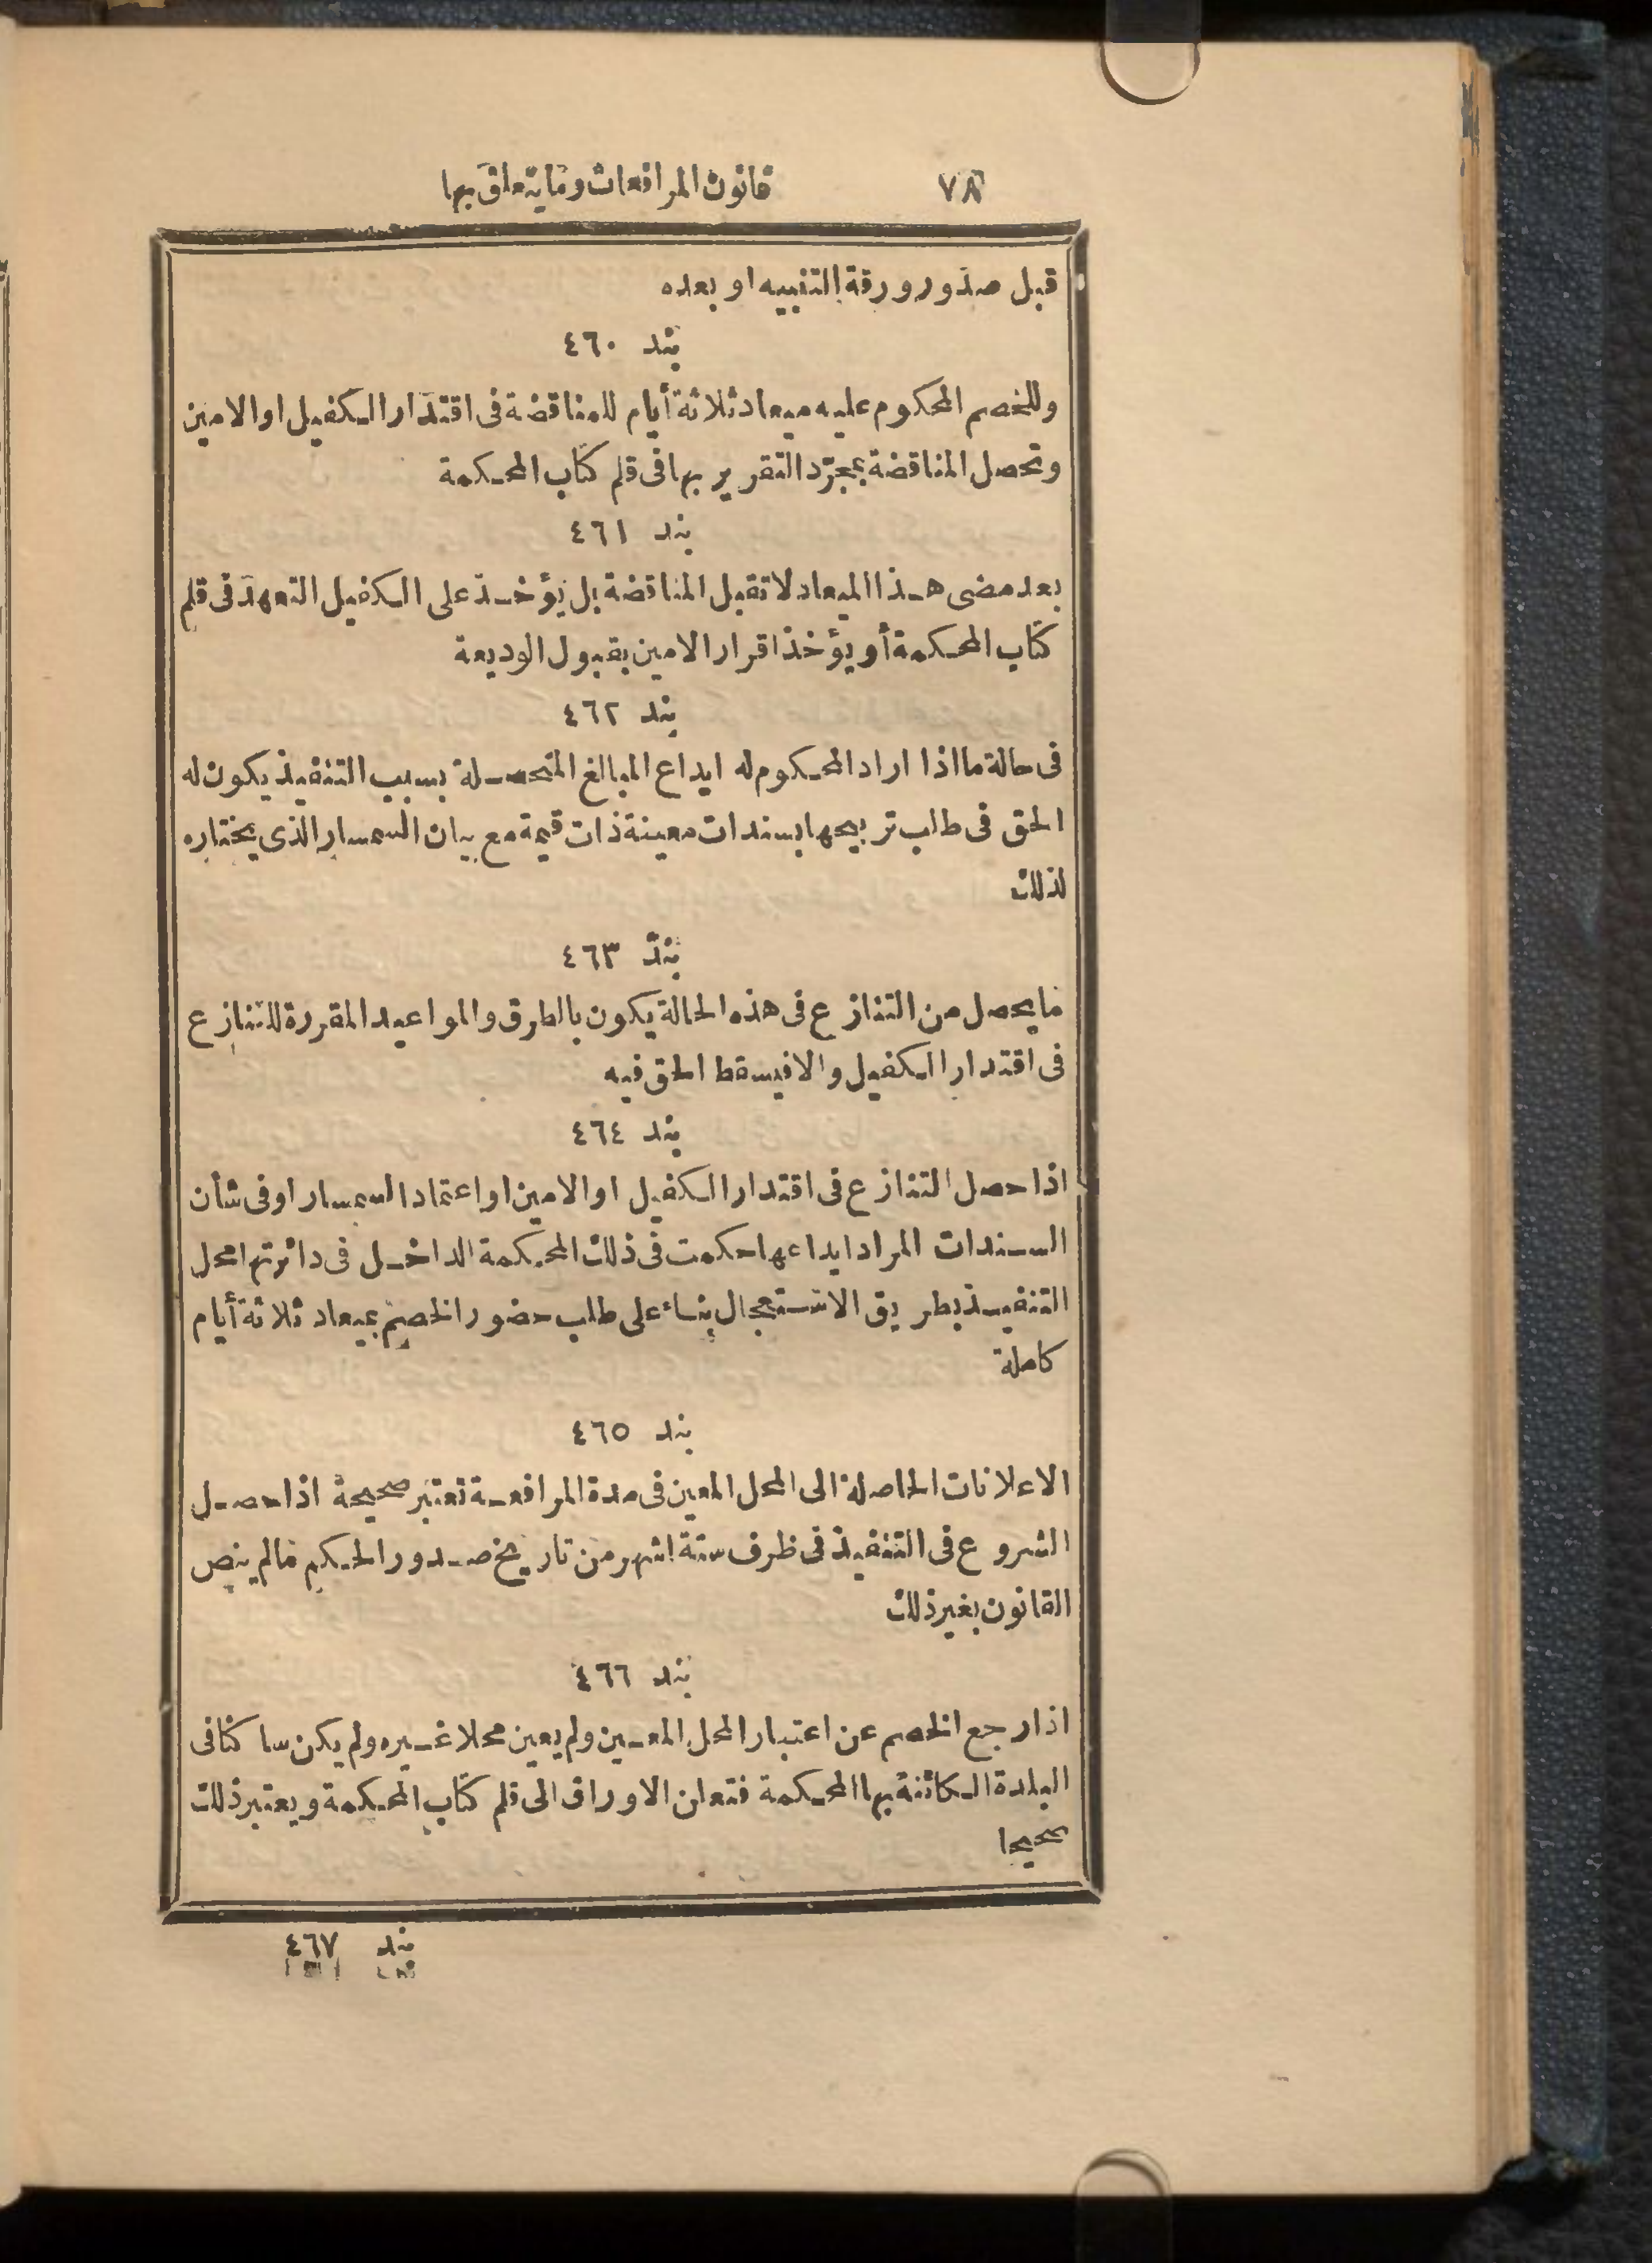 ٧٨ قانون المرافعات وما يتعلق بها
قبل صدور ورقة التنبيه او بعده
بند ٤٦٠
وللخصم المحكوم عليه ميعاد ثلاثة أيام للمناقضة فى اقتدار الكفيل او الامين
وتحصل المناقضة بمجرّد التقرير بها فى قلم كتاب المحكمة
بند ٤٦١
بعد مضى هذا الميعاد لا تقبل المناقضة بل يؤخذ على الكفيل التعهد فى قلم
كتاب المحكمة أو يؤخذ اقرار الامين بقبول الوديعة
بند ٤٦٢
فى حالة ما اذا اراد المحكوم له ايداع المبالغ المتحصلة بسبب التنفيذ يكون له
الحق فى طلب تربيحها بسندات معينة ذات قيمة مع بيان السمسار الذى يختاره
لذلك
بند ٤٦٣
ما يحصل من التنازع فى هذه الحالة يكون بالطرق والمواعيد المقررة للتنازع
فى اقتدار الكفيل والا فيسقط الحق فيه
بند ٤٦٤
اذا حصل التنازع فى اقتدار الكفيل او الامين او اعتماد السمسار او فى شأن
السندات المراد ايداعها حكمت فى ذلك المحكمة الداخل فى دائرتها محل
التنفيذ بطريق الاستعجال بناء على طلب حضور الخصم بميعاد ثلاثة أيام
كاملة
بند ٤٦٥
الاعلانات الحاصلة الى المحل المعين فى مدة المرافعة تعتبر صحيحة اذا حصل
الشروع فى التنفيذ فى ظرف ستة اشهر من تاريخ صدور الحكم ما لم ينص
القانون بغير ذلك
بند ٤٦٦
اذا رجع الخصم عن اعتبار المحل المعين ولم يعين محلا غيره ولم يكن ساكنا فى
البلدة الكائنة بها المحكمة فتعلن الاوراق الى قلم كتاب المحكمة ويعتبر ذلك
صحيحا
بند ٤٦٧